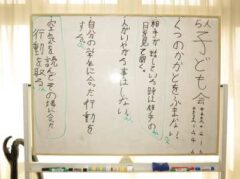 子ども会
くつのかかとをふまない。
相手が話している時は相手の
目を見て聞く。
人がいやがる事はしない。
自分の学年に合った行動を
する。
空気を読んでその場に合った
行動を取る。